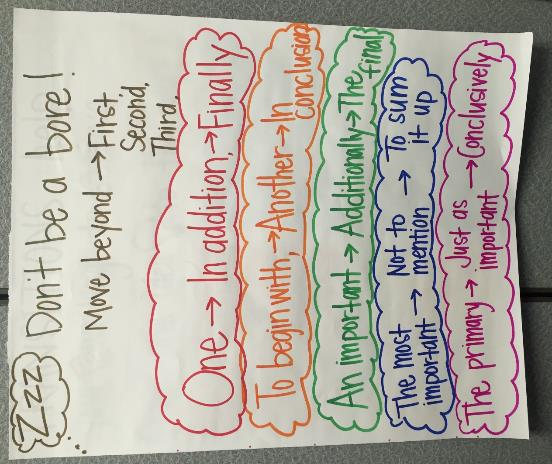 Zzz
Don't be a bore!
Move beyond → First,
Second,
Third,
One → In addition, → Finally
To begin with, → Another → In
conclusion
An important → Additionally → The
final
The most
important → Not to
mention → To sum
it up
The primary → Just as
important → Conclusively